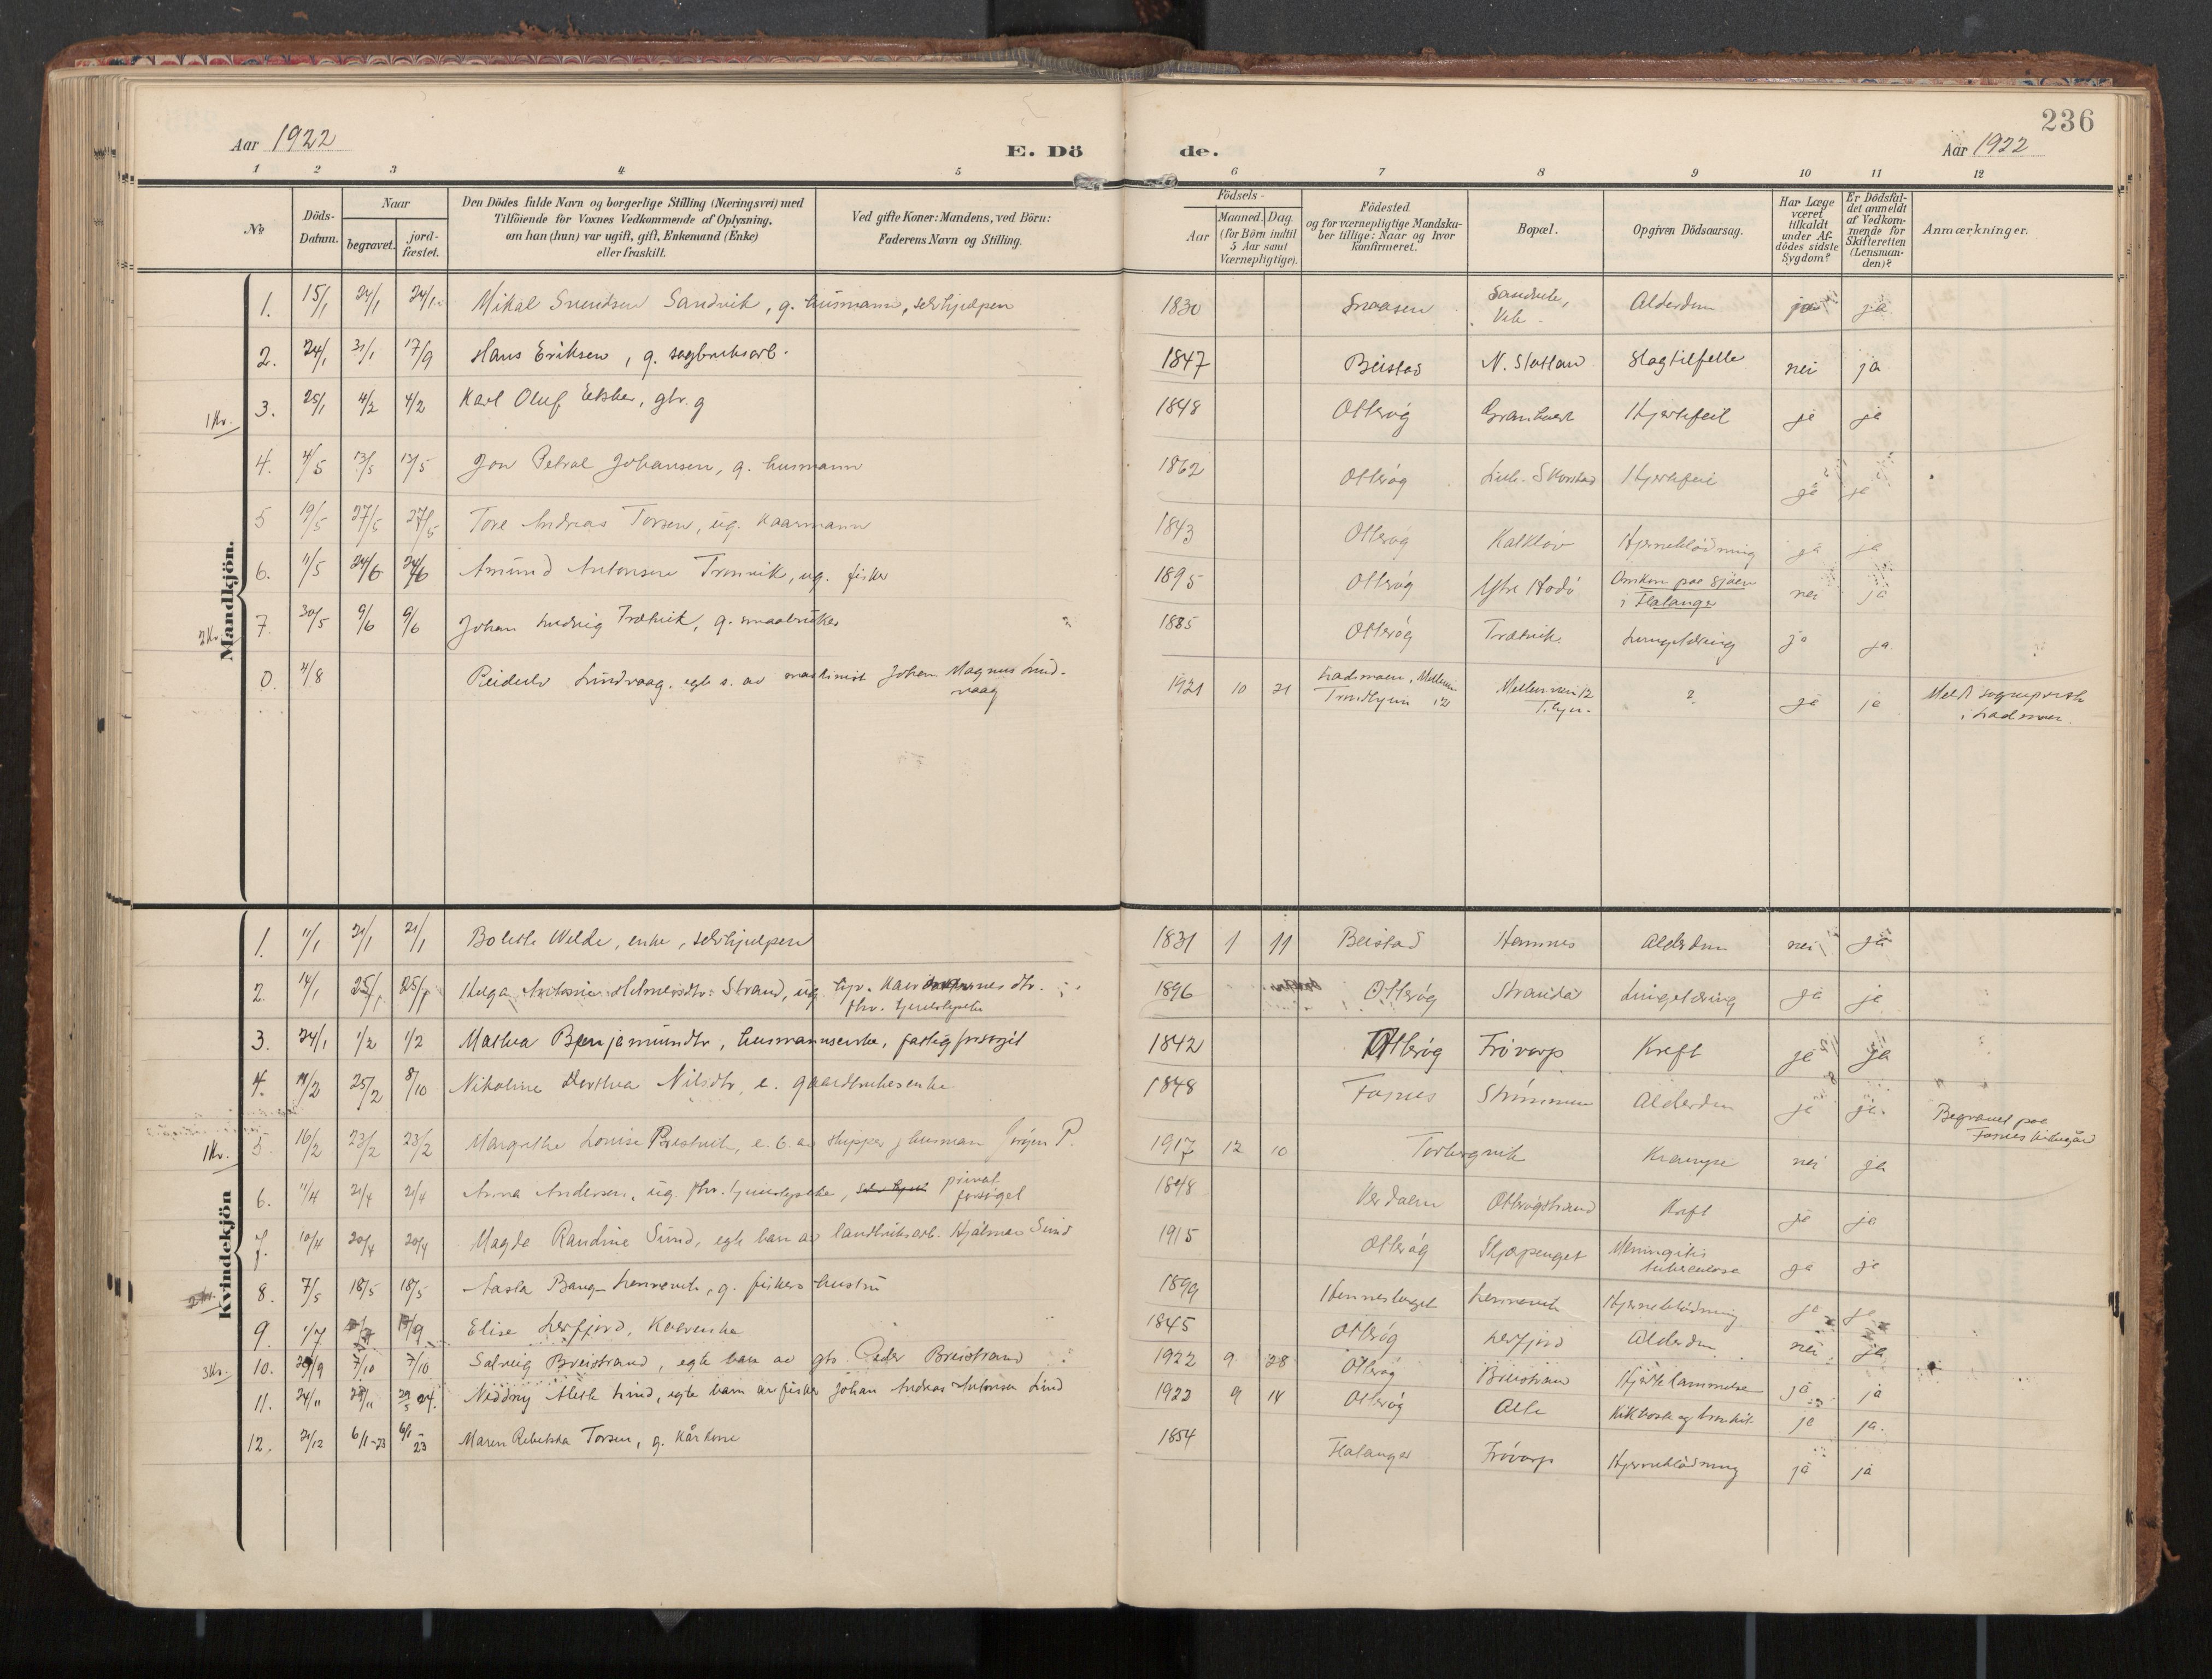 236
Aar 1922 E. Dö de. Aar 1922
1 2 3 4 5 6 7 8 9 10 11 12
No. Döds-Datum. Naar begravet. jord-fæstet.
Den Dödes fulde Navn og borgerlige Stilling (Næringsvei) med
Tilföiende for Voxnes Vedkommende af Oplysning,
om han (hun) var ugift, gift, Enkemand (Enke)
eller fraskilt.
Ved gifte Koner: Mandens, ved Börn:
Faderens Navn og Stilling.
Födsels-
Aar Maaned. Dag.
(for Börn indtil
5 Aar samt
Værnepligtige).
Födested
og for værnepligtige Mandska-
ber tillige: Naar og hvor
konfirmeret.
Bopæl.
Opgiven Dödsaarsag.
Har Læge
været
tilkaldt
under Af-
dödes sidste
Sygdom?
Er Dödsfal-
det anmeldt
af Vedkom-
mende for
Skifteretten
(Lensman-
den)?
Anmærkninger.
Mandkjön.
1. 15/1 24/1 24/1 Mikal Svendsen Sandvik, g. husmann, selvhjulpen 1830 Snaasen Sandvik, Vik Alderdom ja
2. 24/1 31/1 17/9 Hans Eriksen, g. sagbruksarb. 1847 Beistad N. Statlan Slagtilfelle nei ja
1 Kr. 3. 25/1 4/2 4/2 Karl Oluf, gbr. g 1848 Otterøy Hjertefeil ja ja
4. 4/5 13/5 13/5 Jon Petral Johansen, g. husmann 1862 Otterøy Skorstad Hjertefeil ja ja
5 19/5 27/5 27/5 Tore Andreas Torsen, ug. kaarmann 1843 Otterøy Kalkløv Hjerneblødning ja ja
6. 11/5 24/6 24/6 Amund Antonsen Tronvik, ug. fisker 1895 Otterøy Ytre Hodø Omkom paa sjøen i Flatanger nei ja
2 Kr. 7. 30/5 9/6 9/6 Johan Ludvig Trætvik, g. smaabruker 1885 Otterøy Trætvik Lungetæring ja ja.
0. 4/8 Reidulv Lindvaag, egte s. av maskinist Johan Magnus Lind-
vaag 1921 10 21 Lademoen, Mellemv.
Trondhjem 12 Mellemveien 12
T.hjem. ? ja ja Meldt sogneprest
i Lademoen.
Kvindekjön
1. 11/1 21/1 21/1 Bolette Welde, enke, selvhjulpen 1831 1 11 Beistad Hamnes Alderdom nei ja
2. 14/1 25/1 25/1 Helga Antonie Helmersdtr. Strand, ug. dtr.
fhv. tjenestepike 1896 Otterøy Stranda Lungetæring ja ja
3. 24/1 1/2 1/2 Mathea Benjaminsdtr, husmannsenke, fattigforsørget 1842 Otterøy Frøvarp Kreft ja ja
4. 14/2 25/2 8/10 Nikoline Dorthea Nilsdtr, e. gaardbrukerenke 1848 Fosnes Strømmen Alderdom ja ja. Begravet paa
Fosnes kirkegård
1 Kr. 5. 16/2 23/2 23/2 Margrethe Louise Prestvik, e. b. av skipper, husman Jørgen P. 1917 12 10 Torbergvik Krampe nei ja
6. 11/4 21/4 21/4 Anna Andersen, ug. fhv. tjenestepike, privat
forsørget 1848 Verdalen Otterøystrand Kreft ja ja
7. 10/4 20/4 20/4 Magda Randine Sund, egte barn av landbruksarb. Hjalmar Sund 1915 Otterøy Skjærpenget Meningitis
tuberculosa ja ja
8. 7/5 18/5 18/5 Aasta Bang-Lennavik, g. fiskers hustru 1899 Hennesberget Lennavik Hjerneblødning ja ja
9. 1/7 Elise Lerfjord, Kaarenke 1845 Otterøy Lerfjord Alderdom nei ja
3 Kr. 10. 7/10 7/10 Solveig Breistrand, egte barn av gbr. Peder Breistrand 1922 9 28 Otterøy Breistrand Hjertelammelse ja ja
11. 24/11 Neddny Alette Lind, egte barn av fisker Johan Andreas Antonsen Lind 1922 9 14 Otterøy Alte Kikhoste og bronkit. ja ja.
12. 21/12 6/1-23 6/1-23 Maren Rebekka Torsen, g. kårkone 1854 Flatanger Frøvarp Hjerneblødning ja ja